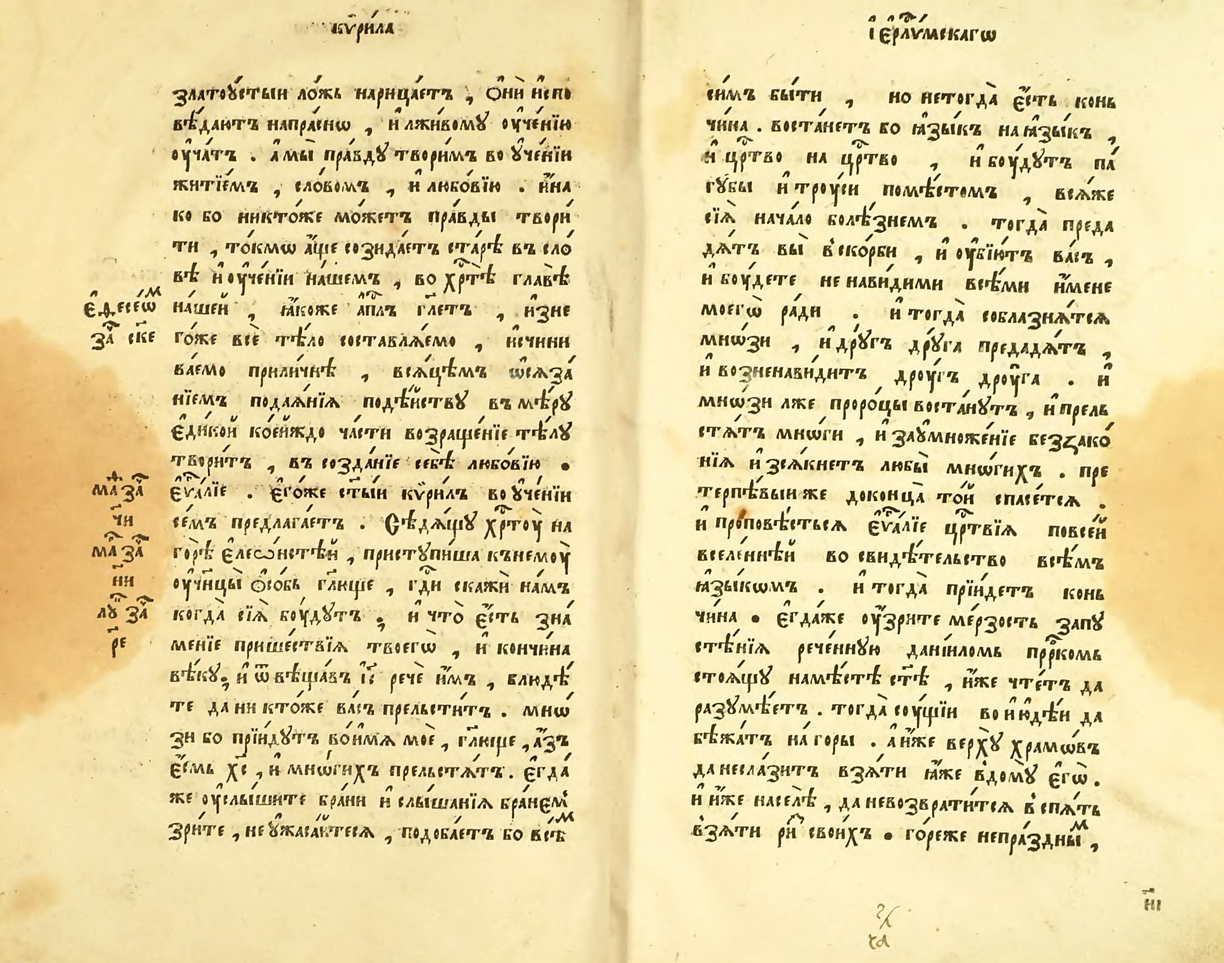 кѷри́ла
златоꙋ́стыи ло́жь нарица́етъ , ѻ҆нѝ и҆спо
вѣ́даютъ напра́снѡ , и҆ лжи́вомꙋ оу҆че́нїю
оу҆ча́тъ . а҆ мы̀ пра́вдꙋ твори́мъ во ꙋ҆че́нїи
житїе́мъ , сло́вомъ , и҆ любо́вїю . и҆на
ко бо никто́же мо́жетъ пра́вды твори́
ти , то́кмѡ а҆́ще созида́етъ ста́рѣ въ сло́
вѣ и҆ оу҆че́нїи на́шемъ , во хрⷭ҇тѣ̀ гла́вѣ
на́шей , ꙗ҆́коже а҆пⷭ҇лъ гл҃етъ , и҆зне
го́же всѐ тѣ́ло составлѧ́емо , и҆счини
ва́емо прили́чнѣ , всѧ́цѣмъ ѡ҆сѧза́
нїемъ подаѧ́нїѧ подѣ́йствꙋ въ мѣ́рꙋ
є҆ди́ной коеи҆́ждо ча́сти возраще́нїе тѣ́лꙋ
твори́тъ , въ созда́нїе себѣ̀ любо́вїю .
є҆ѵⷢ҇а́лїе . є҆го́же ст҃ы́и кѷри́лъ во ꙋ҆че́нїи
се́мъ предлага́етъ . Сѣдѧ́щꙋ хрⷭ҇тоу̀ на
горѣ̀ є҆леѡ́нстѣй , пристꙋпи́ша къ немоу̀
оу҆чн҃цы̀ ѻ҆со́бь гл҃юще , гдⷭ҇и скажѝ на́мъ
когда̀ сїѧ̑ боу́дꙋтъ ; и҆ что̀ є҆́сть зна́
менїе прише́ствїѧ твоегѡ̀ , и҆ кончи́на
вѣ́кꙋ; и҆ ѿвѣща́въ і҆с҃ речѐ и҆̀мъ , блюдѣ́
те да ни кто́же ва́съ прельсти́тъ . мнѡ́
зи бо прїи́дꙋтъ во и҆́мѧ моѐ , гл҃юще , а҆́зъ
є҆́смь хс҃ , и҆ мнѡ́гихъ прельстѧ́тъ. є҆гда́
же оу҆слы́шите бра́ни и҆ слы́шанїѧ бра́немъ
зри́те , не ꙋ҆жаса́йтесѧ , подоба́етъ бо всѣⷨ
є҆фесеѡⷨ
за҄ сн҃е
маⷴ҇ за҄
ч҃и
маⷴ҇ за҄
н҃и
лꙋ҄ за҄
р҃е
і҆єрⷭ҇лꙋ́мскагѡ
си́мъ бы́ти , но не тогда̀ є҆́сть конь
чи́на . воста́нетъ бо ꙗ҆зы́къ на ꙗ҆зы́къ ,
и҆ црⷭ҇тво на црⷭ҇тво , и҆ боу́дꙋтъ па́
гꙋбы и҆ троу́си по мѣ́стомъ , всѧ́же
сїѧ̑ нача́ло болѣ́знемъ . тогда̀ преда
дѧ́тъ вы̀ в ско́рби , и҆ оу҆бїю́тъ ва́съ ,
и҆ боу́дете ненави́дими все́ми и҆́мене
моегѡ̀ ра́ди . и҆ тогда̀ соблазнѧ́тсѧ
мнѡ́зи , и҆ дрꙋ́гъ дрꙋ́га предадѧ́тъ ,
и҆ возненави́дитъ дроу́гъ дроу́га . и҆
мнѡ́зи лже проро́цы воста́нꙋтъ , и҆ прель
стѧ́тъ мнѡ́ги , и҆ за ꙋ҆мноеже́нїе беззако́
нїѧ и҆зсѧ́кнетъ любы̀ мнѡ́гихъ . пре
терпѣ́выиже до конца̀ то́й спасе́тсѧ .
и҆ проповѣ́стьсѧ є҆ѵⷢ҇а́лїе црⷭ҇твїѧ по все́й
вселе́ннѣй во свидѣ́тельство всѣ́мъ
ꙗ҆зы́кѡмъ . и҆ тогда̀ прїи́детъ конь
чи́на . є҆гда́же оу҆́зрите ме́рзость запꙋ
стѣ́нїѧ рече́ннꙋю данїи́ломь прⷪ҇ркомь
стоѧ́щꙋ на мѣ́стѣ ст҃ѣ , и҆́же чте́тъ да
разꙋмѣ́етъ . тогда̀ соу́щїи во и҆ю҆дѣ́и да
бѣжа́тъ на го́ры . а҆ и҆́же верхꙋ̀ хра́мѡвъ
да не сла́зитъ взѧ́ти ꙗ҆́же в до́мꙋ є҆гѡ̀ .
и҆ и҆́же на селѣ̀ , да не возврати́тсѧ в спѧ́ть
взѧ́ти ри҄ свои́хъ . го́реже непра́здныⷨ ,
н҃і